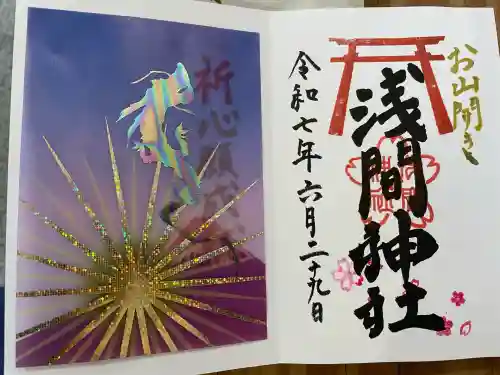 お山開き
浅間神社
令和七年六月二十九日
祈心願成就